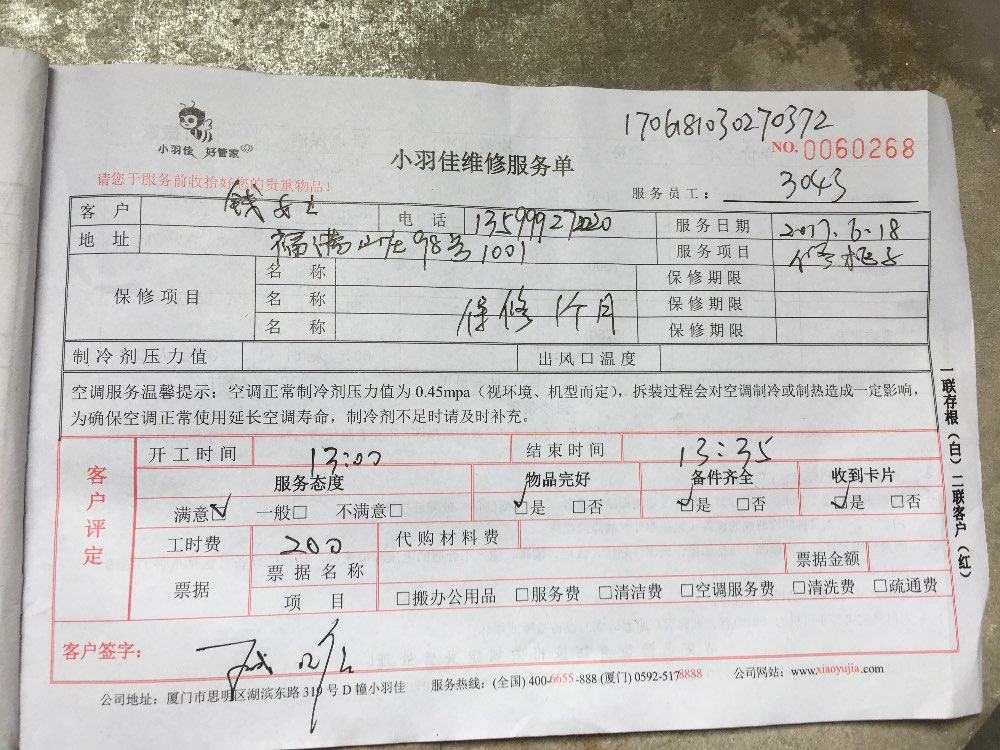 1706181030270372
小羽佳 好管家
小羽佳维修服务单
NO.0060268
请您于服务前收拾好您的贵重物品！
服务员工： 3043
客户 钱女士 电话 13599927220 服务日期 2017.6.18
地址 福满山庄98号1001 服务项目 修柜子
保修项目 名称 保修期限
名称 保修1个月 保修期限
名称 保修期限
制冷剂压力值 出风口温度
空调服务温馨提示：空调正常制冷剂压力值为 0.45mpa（视环境、机型而定），拆装过程会对空调制冷或制热造成一定影响，
为确保空调正常使用延长空调寿命，制冷剂不足时请及时补充。
客户评定
开工时间 13:00 结束时间 13:35
服务态度 物品完好 备件齐全 收到卡片
满意☑ 一般□ 不满意□ ☑是 □否 ☑是 □否 ☑是 □否
工时费 200 代购材料费
票据 票据名称 票据金额
项目 □搬办公用品 □服务费 □清洁费 □空调服务费 □清洗费 □疏通费
客户签字：
公司地址：厦门市思明区湖滨东路319号D幢小羽佳 服务热线：(全国) 400-6655-888 (厦门) 0592-5178888 公司网站：www.xiaoyujia.com
一联存根（白）二联客户（红）